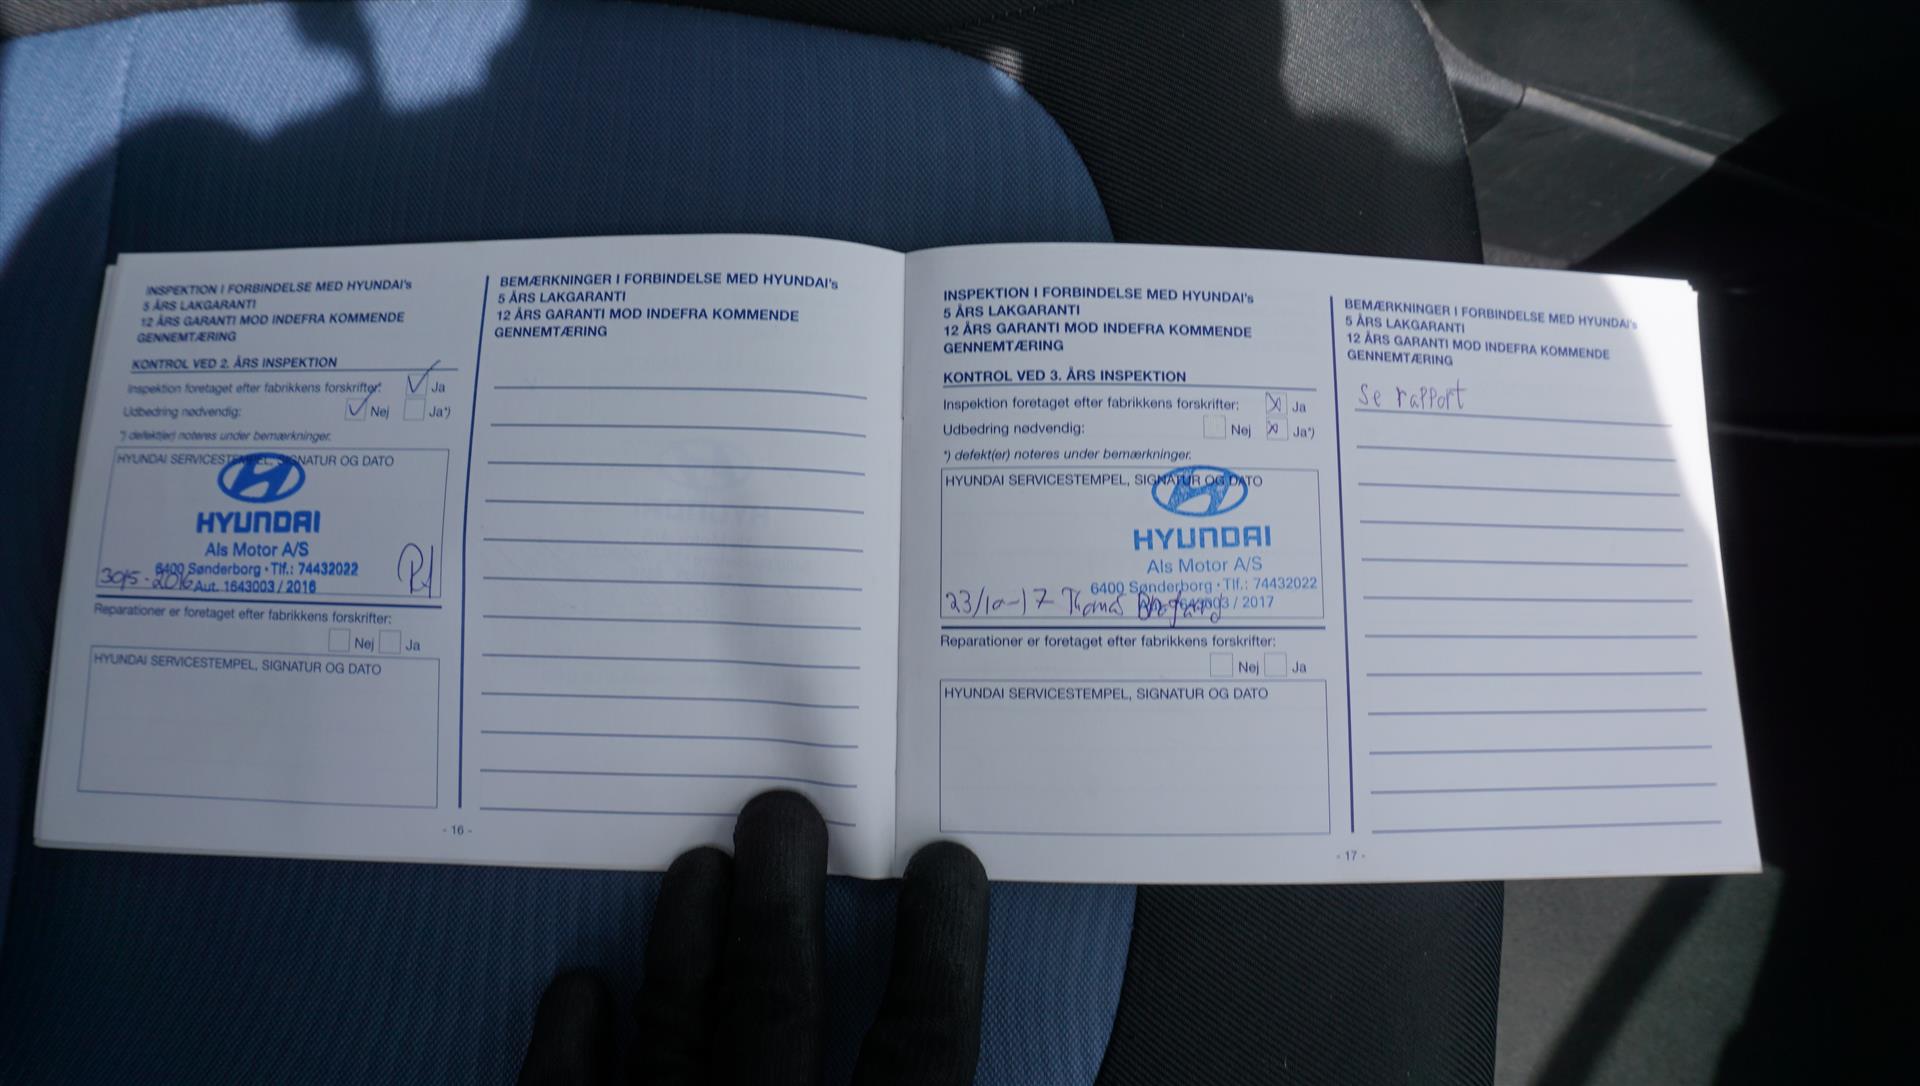 INSPEKTION I FORBINDELSE MED HYUNDAI's
5 ÅRS LAKGARANTI
12 ÅRS GARANTI MOD INDEFRA KOMMENDE
GENNEMTÆRING
KONTROL VED 2. ÅRS INSPEKTION
Inspektion foretaget efter fabrikkens forskrifter: Ja
Udbedring nødvendig: Nej Ja*)
*) defekt(er) noteres under bemærkninger.
HYUNDAI SERVICESTEMPEL, SIGNATUR OG DATO
HYUNDAI
Als Motor A/S
6400 Sønderborg · Tlf.: 74432022
30/5-2016 Aut. 1643003 / 2016
Reparationer er foretaget efter fabrikkens forskrifter:
Nej Ja
HYUNDAI SERVICESTEMPEL, SIGNATUR OG DATO
BEMÆRKNINGER I FORBINDELSE MED HYUNDAI's
5 ÅRS LAKGARANTI
12 ÅRS GARANTI MOD INDEFRA KOMMENDE
GENNEMTÆRING
- 16 -
INSPEKTION I FORBINDELSE MED HYUNDAI's
5 ÅRS LAKGARANTI
12 ÅRS GARANTI MOD INDEFRA KOMMENDE
GENNEMTÆRING
KONTROL VED 3. ÅRS INSPEKTION
Inspektion foretaget efter fabrikkens forskrifter: Ja
Udbedring nødvendig: Nej Ja*)
*) defekt(er) noteres under bemærkninger.
HYUNDAI SERVICESTEMPEL, SIGNATUR OG DATO
HYUNDAI
Als Motor A/S
6400 Sønderborg · Tlf.: 74432022
23/10-17 Thomas / 2017
Reparationer er foretaget efter fabrikkens forskrifter:
Nej Ja
HYUNDAI SERVICESTEMPEL, SIGNATUR OG DATO
BEMÆRKNINGER I FORBINDELSE MED HYUNDAI's
5 ÅRS LAKGARANTI
12 ÅRS GARANTI MOD INDEFRA KOMMENDE
GENNEMTÆRING
Se rapport
- 17 -